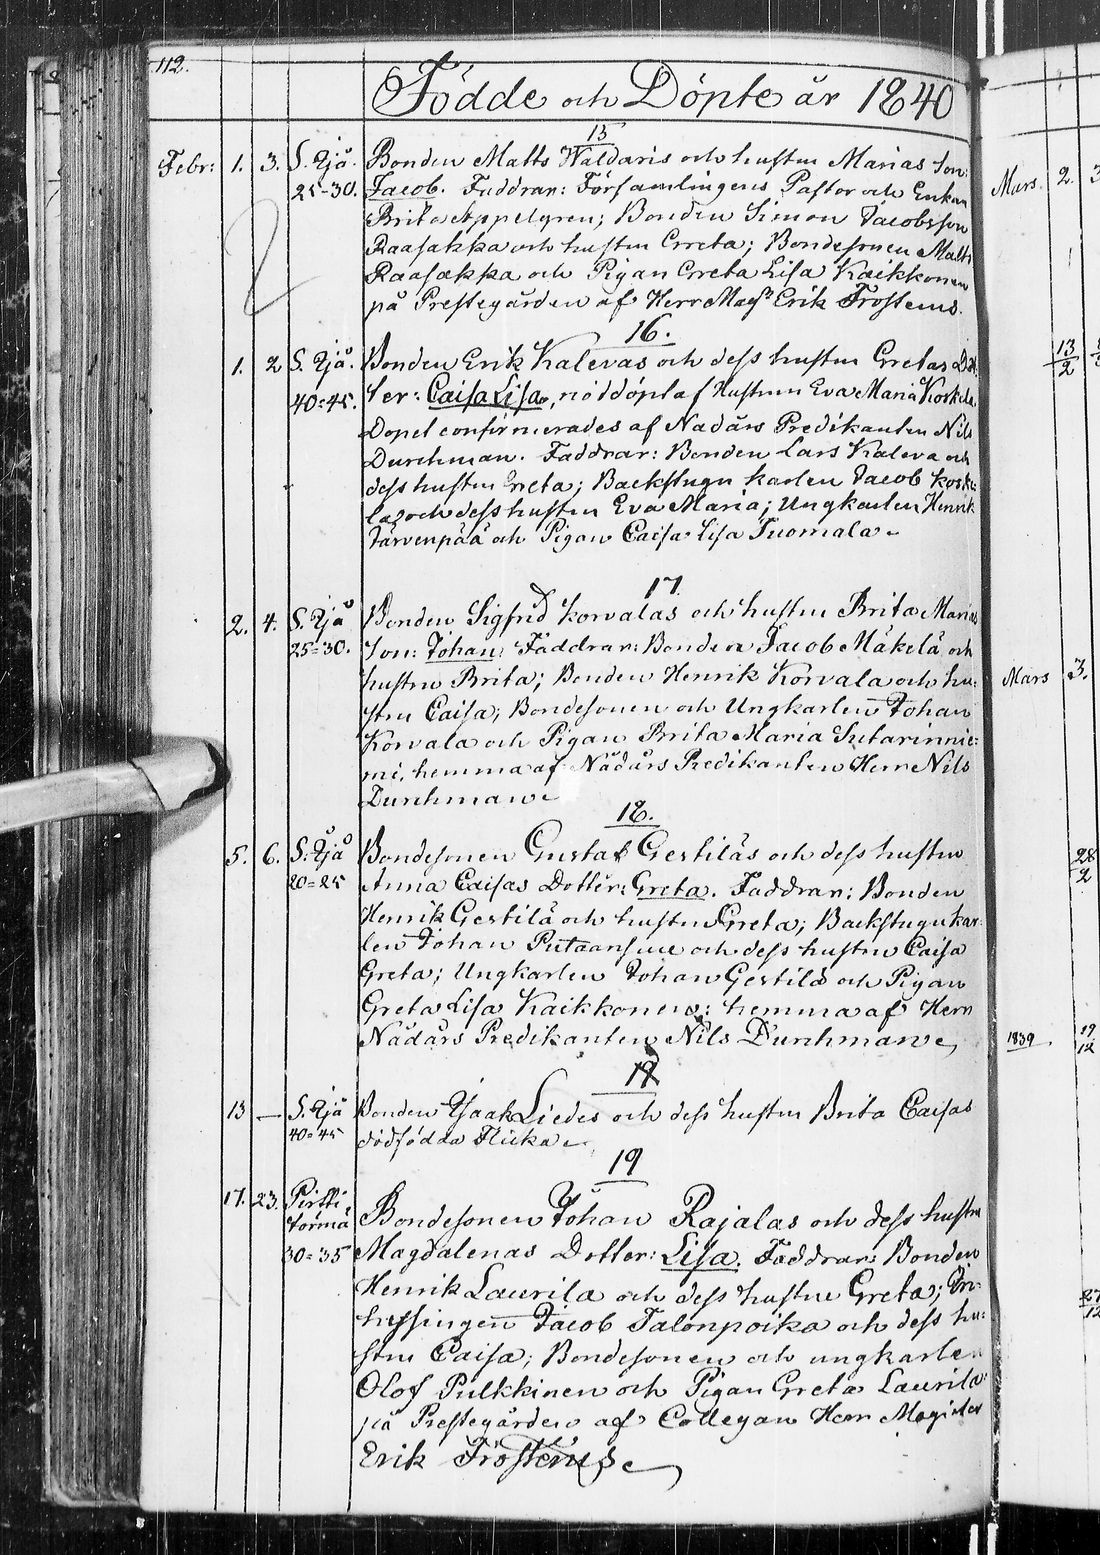 112.
Födde och Döpte år 1840
15
Febr: 1. 3. S. Kjå. Bonden Matts Waldaris och hustru Marias Son:
25-30. Jacob. Faddrar: Församlingens Pastor och Enkan
Brita Appelgren; Bonden Simon Jacobsson
Raasakka och hustru Greta; Bondesonen Matts
Raasakka och Pigan Greta Lisa Kaikkonen
på Prestegården af Herr Magr Erik Frosterus.
16.
1. 2 S. Kjå. Bonden Erik Kalevas och dess hustru Gretas Dot
40=45. ter: Caisa Lisa, nöddöpt af Hustrun Eva Maria Koskela.
Dopet confirmerades af Nådårs Predikanten Nils
Durchman. Faddrar: Bonden Lars Kaleva och
dess hustru Greta; Backstugu karlen Jacob Koske
la, och dess hustru Eva Maria; Ungkarlen Henrik
Järvenpää och Pigan Caisa Lisa Tuomala
17.
2. 4. S. Kjå Bonden Sigfrid Korvalas och hustru Brita Marias
25=30. Son: Johan. Faddrar: Bonden Jacob Mäkelä och
hustru Brita; Bonden Henrik Korvala och hu=
stru Caisa; Bondesonen och Ungkarlen Johan
Korvala och Pigan Brita Maria Sutarinnie=
mi, hemma af Nådårs Predikanten Herr Nils
Durchman
18.
5. 6. S. Kjå Bondesonen Gustaf Gestiläs och dess hustru
20=25 Anna Caisas Dotter: Greta. Faddrar: Bonden
Henrik Gestilä och hustru Greta; Backstugukar
len Johan Putaansuu och dess hustru Caisa
Greta; Ungkarlen Johan Gestilä och Pigan
Greta Lisa Kaikkonen: hemma af Herr
Nådårs Predikanten Nils Durchman
13 — S. Kjå Bonden Isaak Liedes och dess hustru Brita Caisas
40=45 dödfödda Flicka
19
17. 23. Pirtti
törmä Bondesonen Johan Rajalas och dess hustru
30=35 Magdalenas Dotter: Lisa. Faddrar: Bonden
Henrik Laurila och dess hustru Greta; In=
hysingen Jacob Talonpoika och dess hu=
stru Caisa; Bondesonen och ungkarlen
Olof Pulkkinen och Pigan Greta Laurila
på Prestegården af Collegan Herr Magister
Erik Frosterus
Mars. 2. 3
13/2
Mars 3.
28/2
1839 19/12
27/12